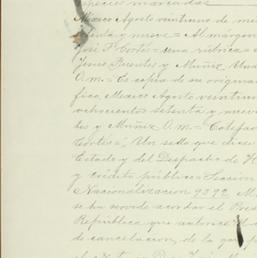 especies marcadas
Mexico Agosto veintiuno de mil
setenta y nueve = Al márgen
José P. Cortés = una rúbrica =
Jesus Puentes y Muñiz. Una
O. m. = Es copia de su original
fica, Mexico Agosto veintiuno
ochocientos setenta y nueve
tes y Muñiz. O. m. = Cotejado
Cortes =", Un sello que dice
Estado y del Despacho de H
y crédito público = Sección
Nacionalizacion 9392. M
se ha servido acordar el Pres
República que autorice Ud
de cancelacion, de la